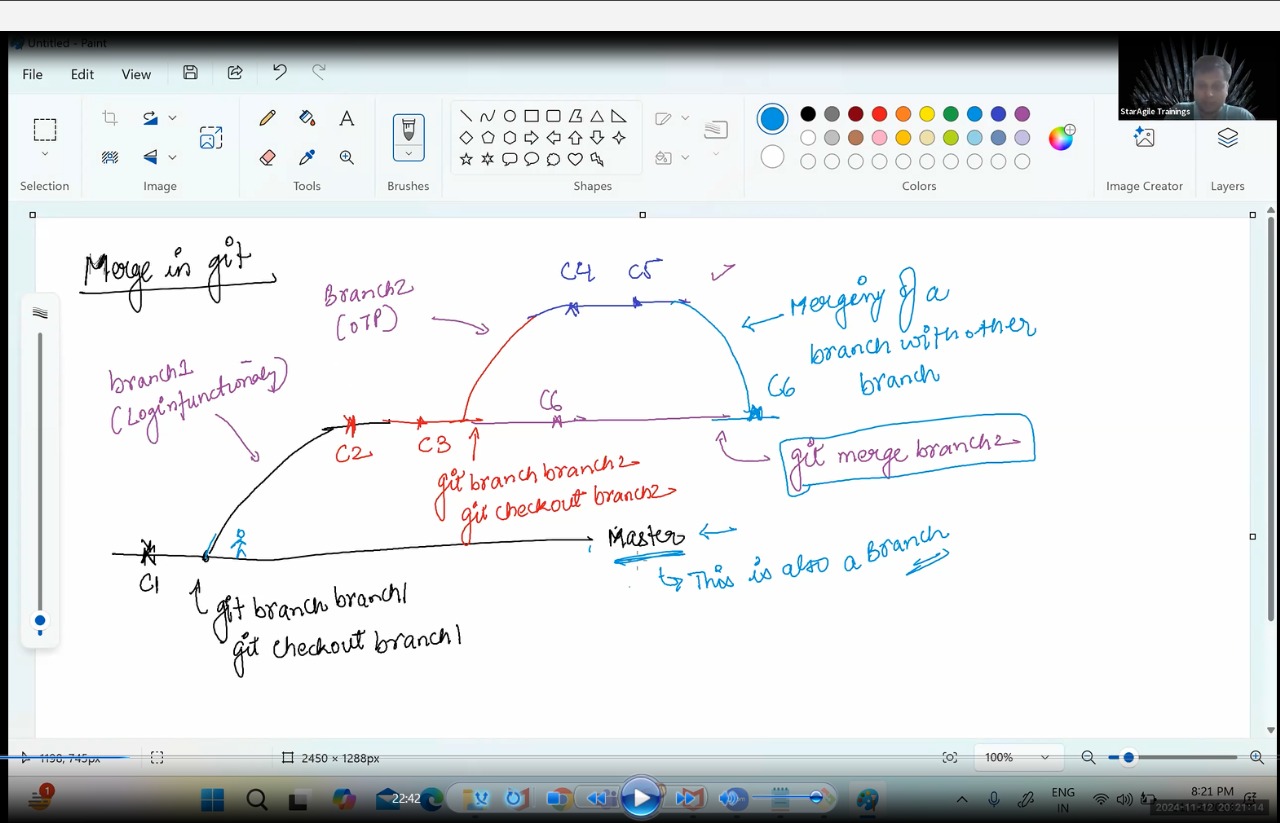 Untitled - Paint
StarAgile Trainings
File Edit View
Selection
Image
Tools
Brushes
Shapes
Colors
Image Creator
Layers
Merge in git
Branch2
(OTP)
C4 C5
Merging of a
branch with other
branch
branch1
(Login functionality)
C2
C3
C6
C6
git merge branch2
git branch branch2
git checkout branch2
Master
This is also a Branch
C1
git branch branch1
git checkout branch1
1198, 745px
2450 × 1288px
100%
1
22:42
ENG
IN
8:21 PM
2024-11-12 20:21:14